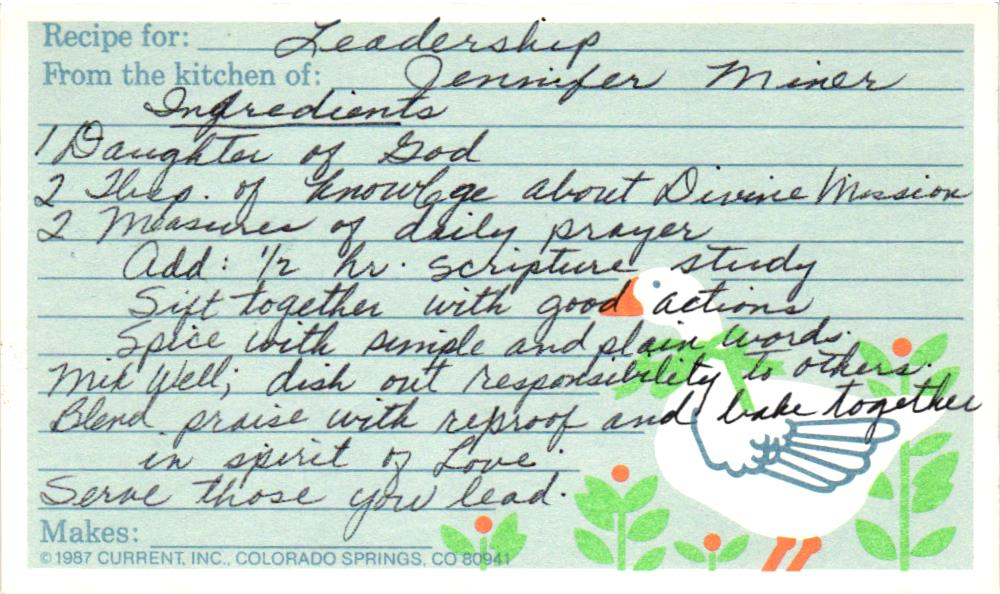 Recipe for: Leadership
From the kitchen of: Jennifer Miner
Ingredients
1 Daughter of God
2 Tbsp. of knowlege about Divine Mission
2 Measures of daily prayer
Add: 1/2 hr. scripture study
Sift together with good actions
Spice with simple and plain words.
Mix Well; dish out responsibility to others.
Blend praise with reproof and bake together
in spirit of Love.
Serve those you lead.
Makes:
©1987 CURRENT, INC., COLORADO SPRINGS, CO 80941